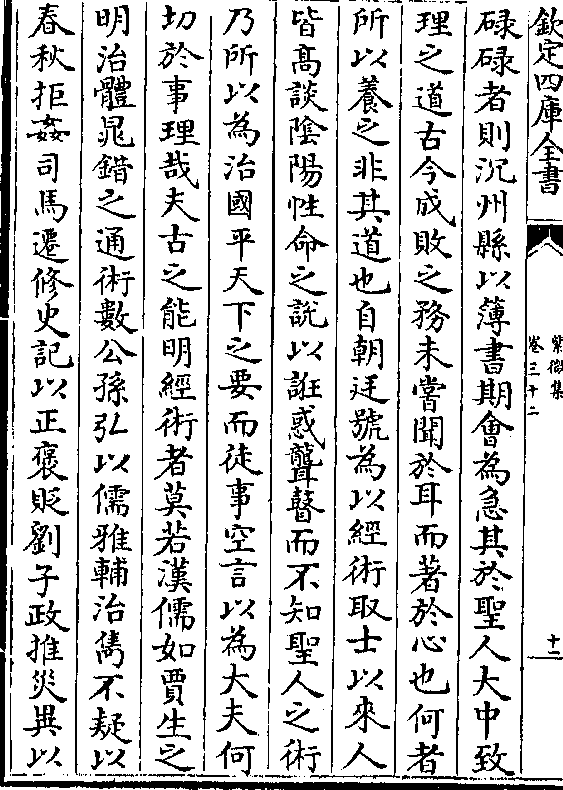 欽定四庫全書
紫微集
卷三十二
十二
碌碌者則沉州縣以薄書期會為急其於聖人大中致
理之道古今成敗之務未嘗聞於耳而著於心也何者
所以養之非其道也自朝廷號為以經術取士以來人
皆髙談陰陽性命之說以誑惑聾瞽而不知聖人之術
乃所以為治國平天下之要而徒事空言以為大夫何
切於事理哉夫古之能明經術者莫若漢儒如賈生之
明治體晁錯之通術數公孫弘以儒雅輔治雋不疑以
春秋拒姦司馬遷修史記以正褒貶劉子政推災異以